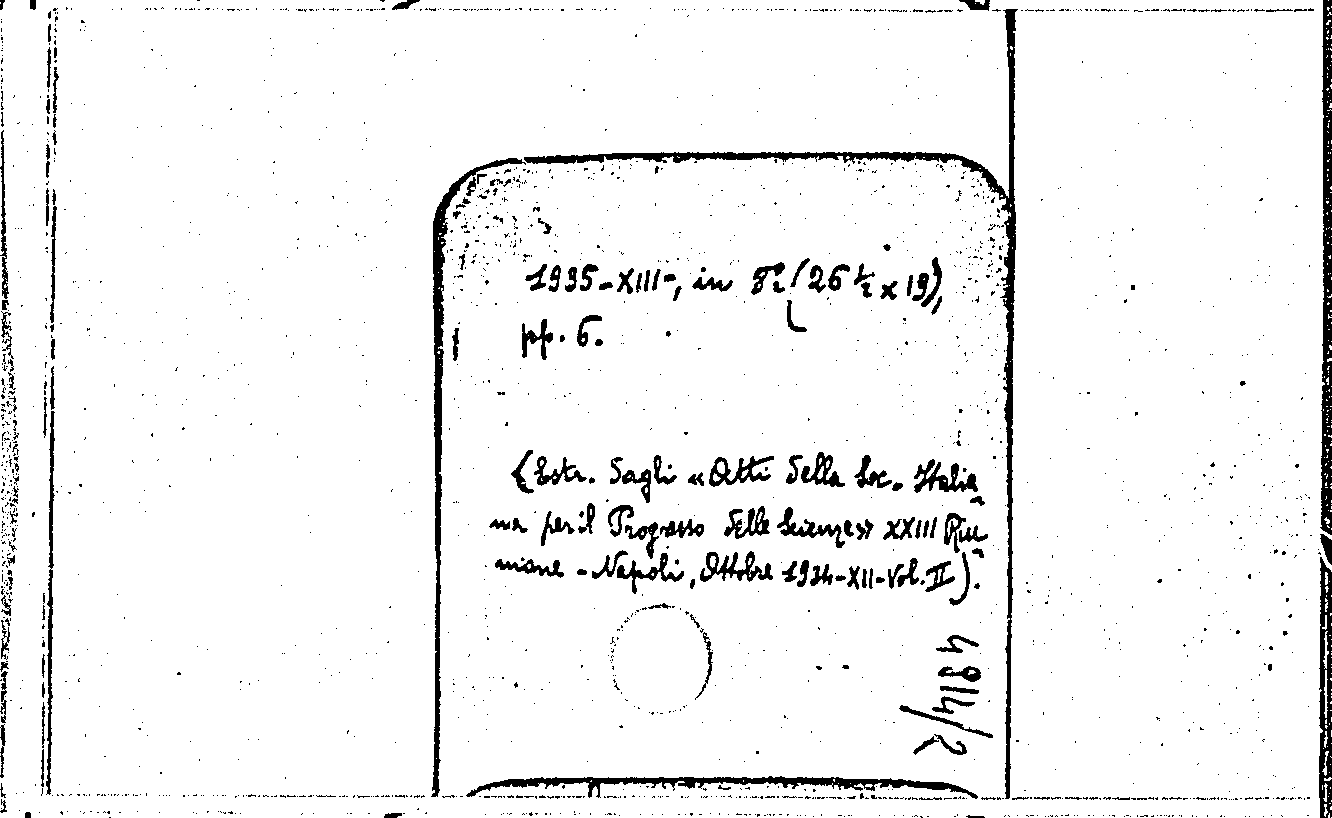 1935-XIII-, in 8º (26 ½ x 19),
pp. 6.
(Estr. dagli «Atti della Soc. Italia-
na per il Progresso delle Scienze» XXIII Riu-
nione - Napoli, Ottobre 1934-XII-Vol. II).
4914/2